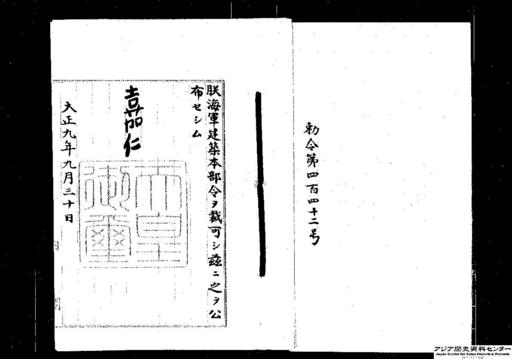 勅令第四百四十二号
朕海軍建築本部令ヲ裁可シ茲ニ之ヲ公
布セシム
嘉仁
天皇
御璽
大正九年九月三十日
アジア歴史資料センター
Japan Center for Asian Historical Records